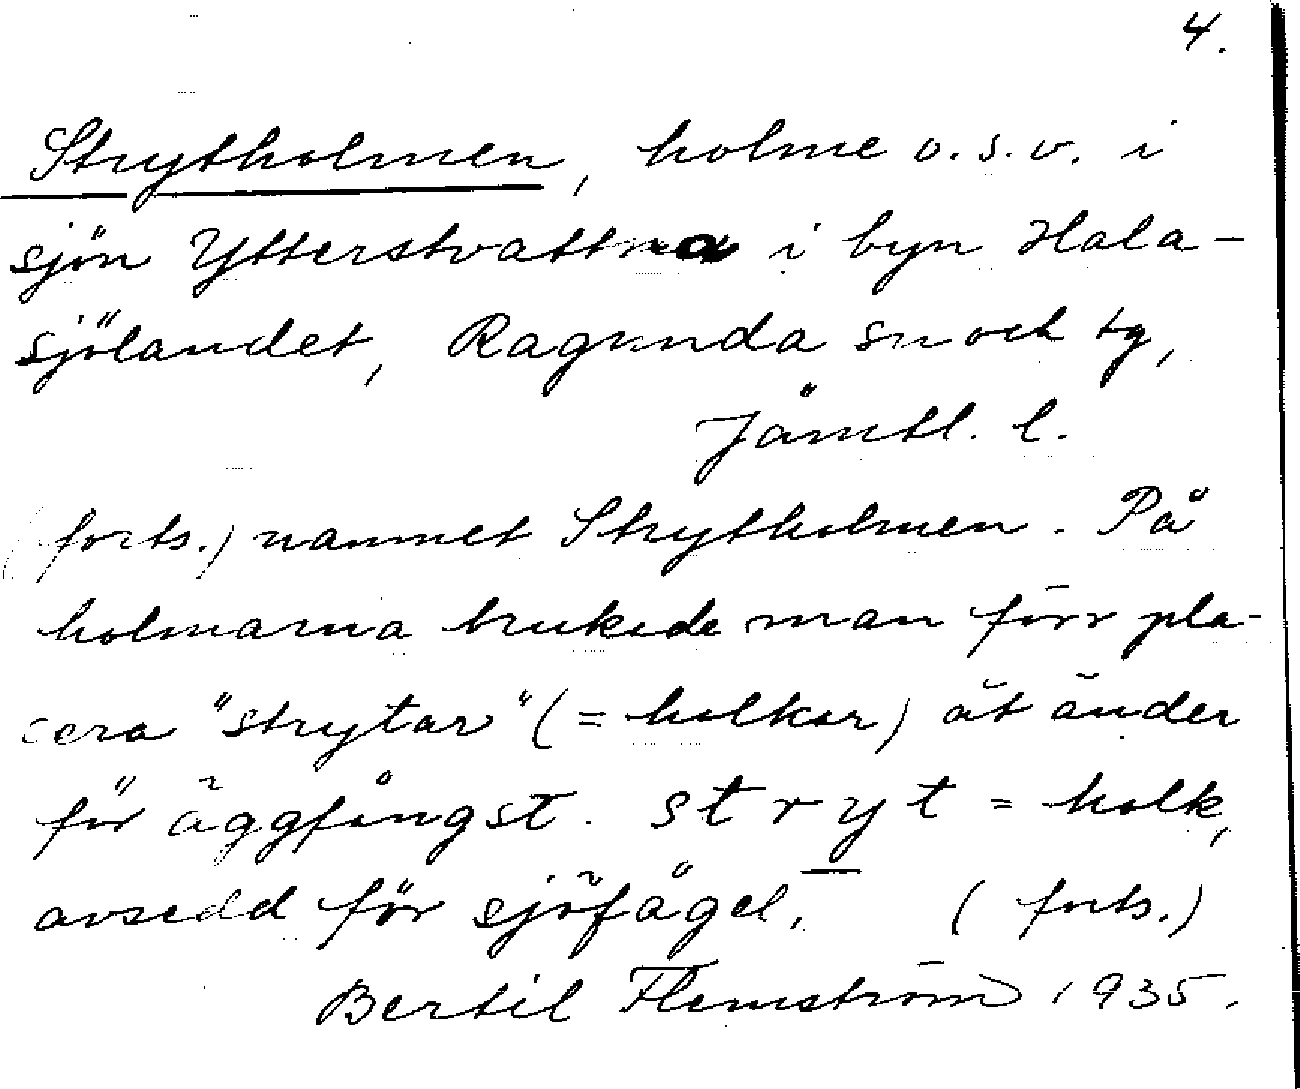 4.
Strytholmen, holme o.s.v. i
sjön Ytterstvattna i byn Hala-
sjölandet, Ragunda sn och tg,
Jämtl. l.
(forts.) namnet Strytholmen. På
holmarna brukade man förr pla-
cera "strytar" (= holkar) åt änder
för äggfångst. stryt = holk,
avsedd för sjöfågel. (forts.)
Bertil Flemström 1935.